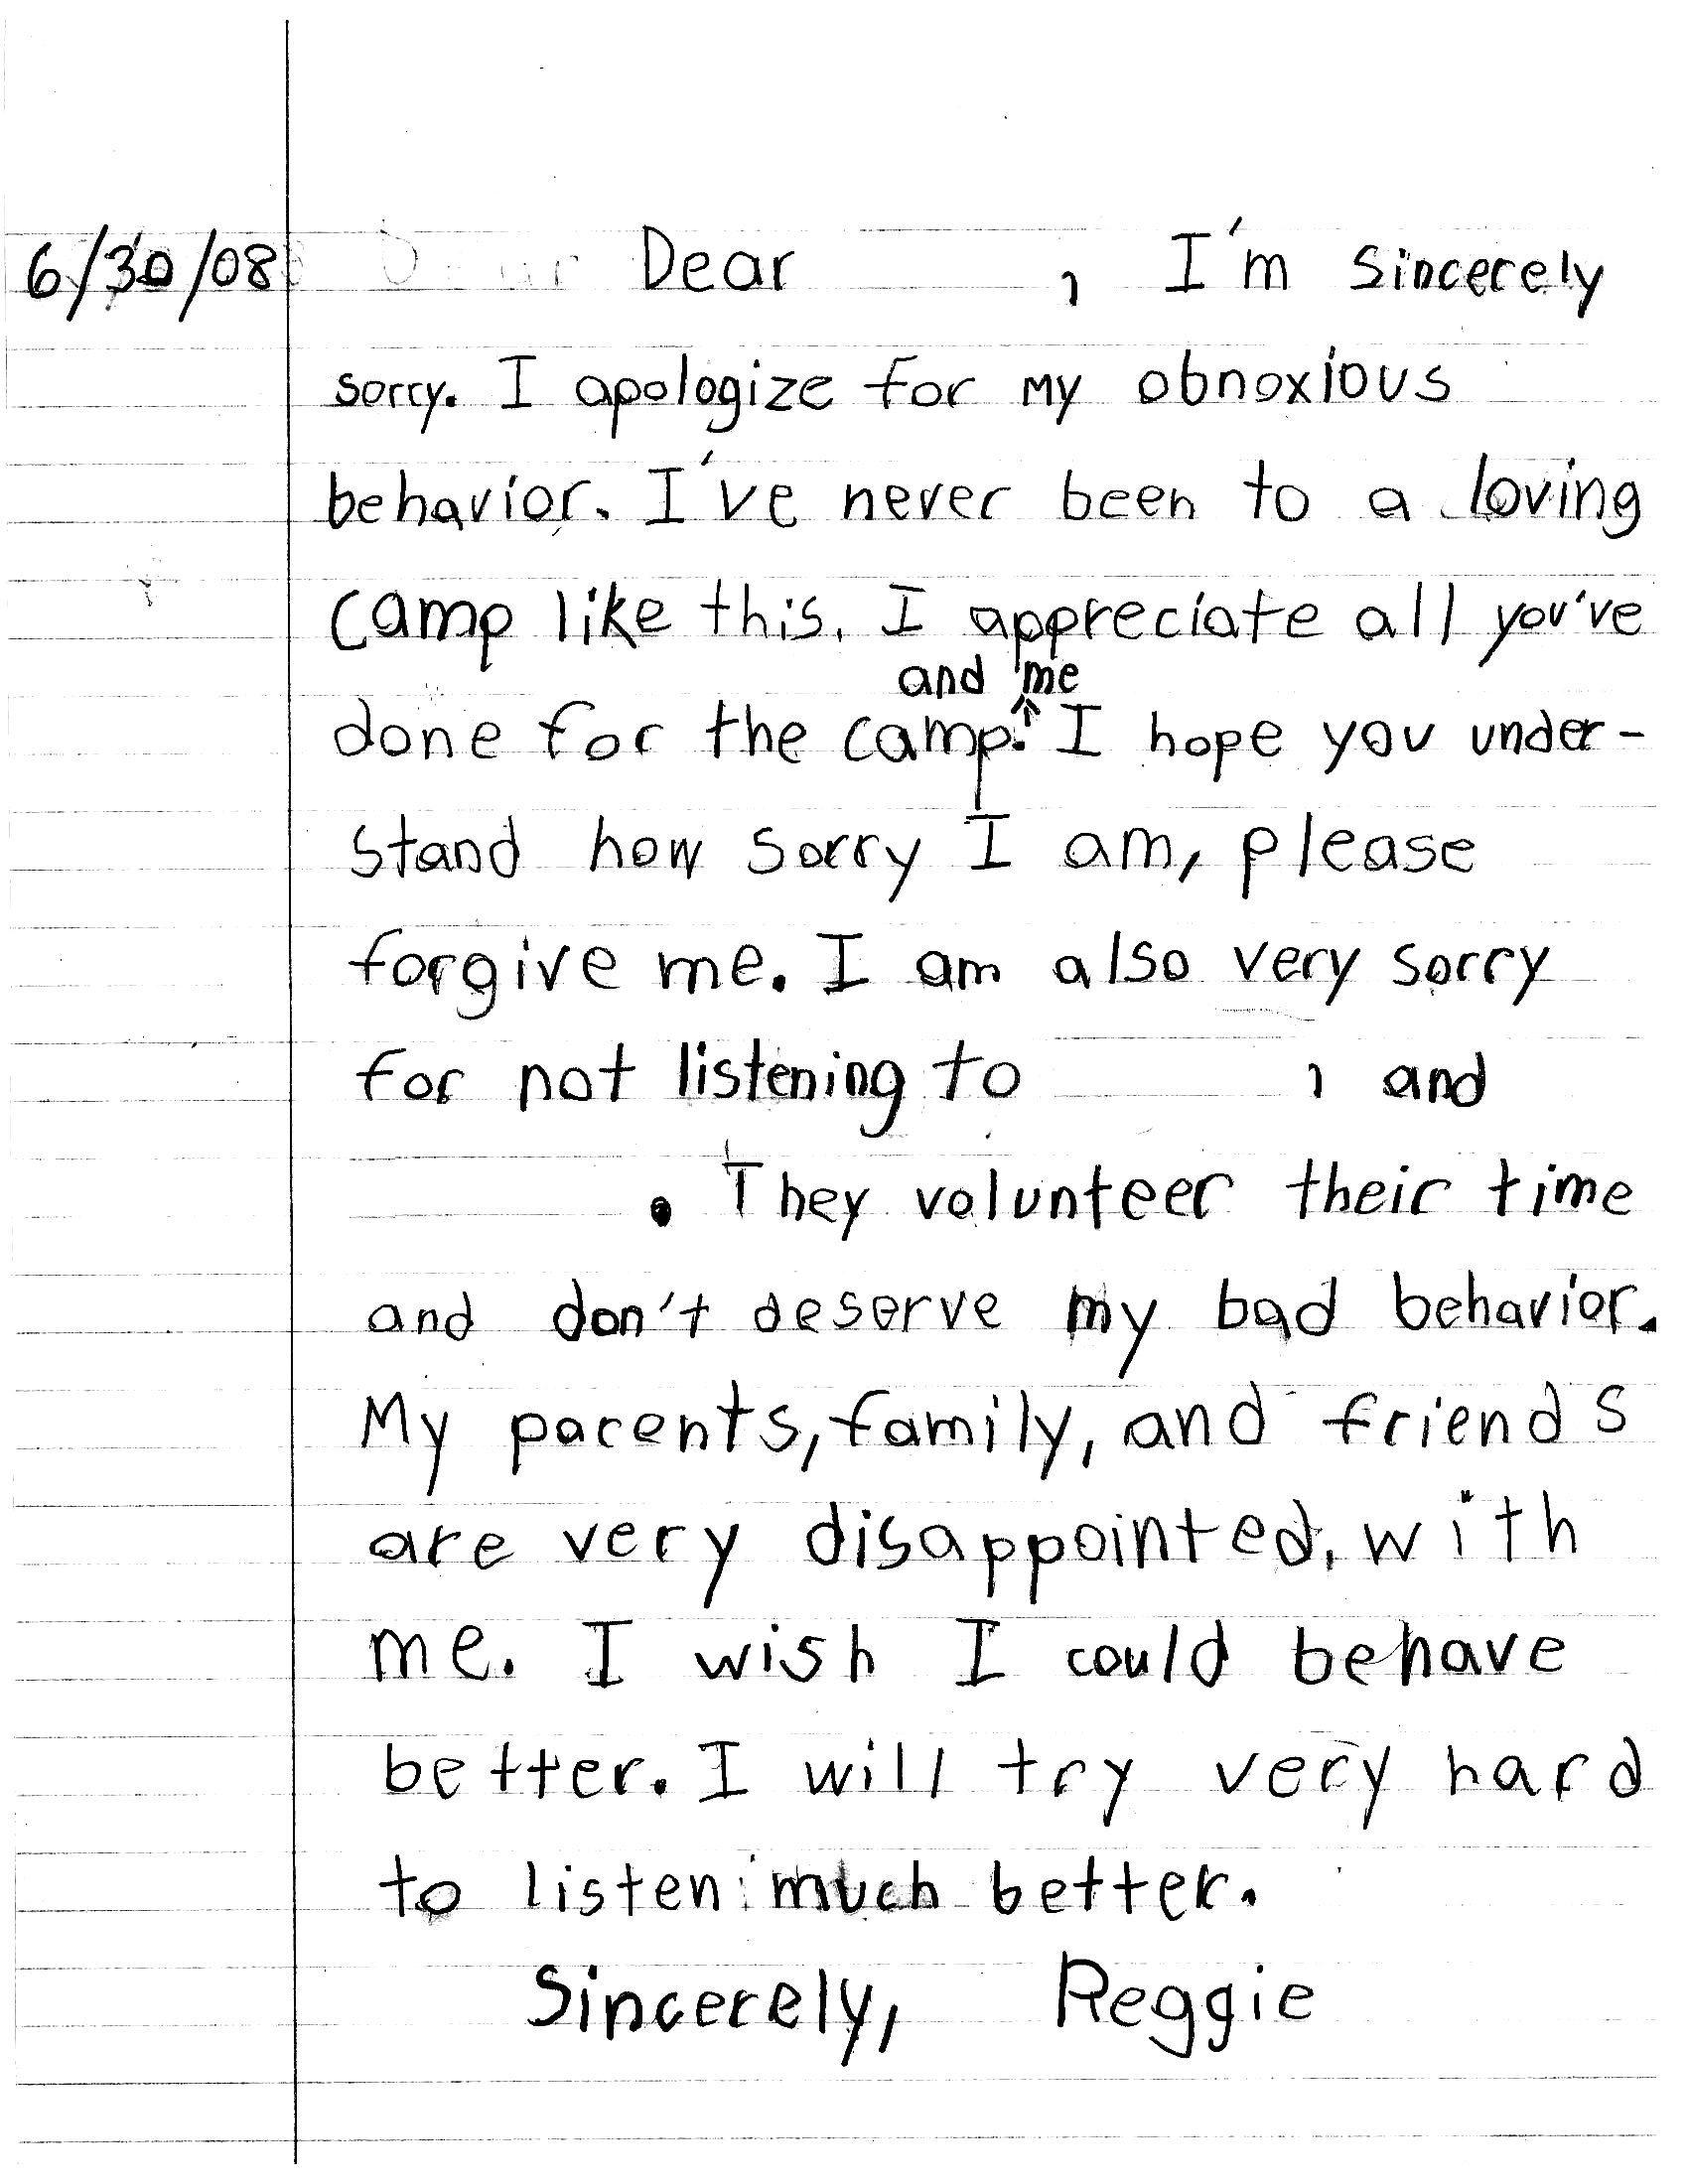 6/30/08 Dear , I'm sincerely
sorry. I apologize for my obnoxious
behavior. I've never been to a loving
camp like this. I appreciate all you've
and me
done for the camp. I hope you under-
stand how sorry I am, please
forgive me. I am also very sorry
for not listening to , and
. They volunteer their time
and don't deserve my bad behavior.
My parents, family, and friends
are very disappointed, with
me. I wish I could behave
better. I will try very hard
to listen much better.
Sincerely, Reggie